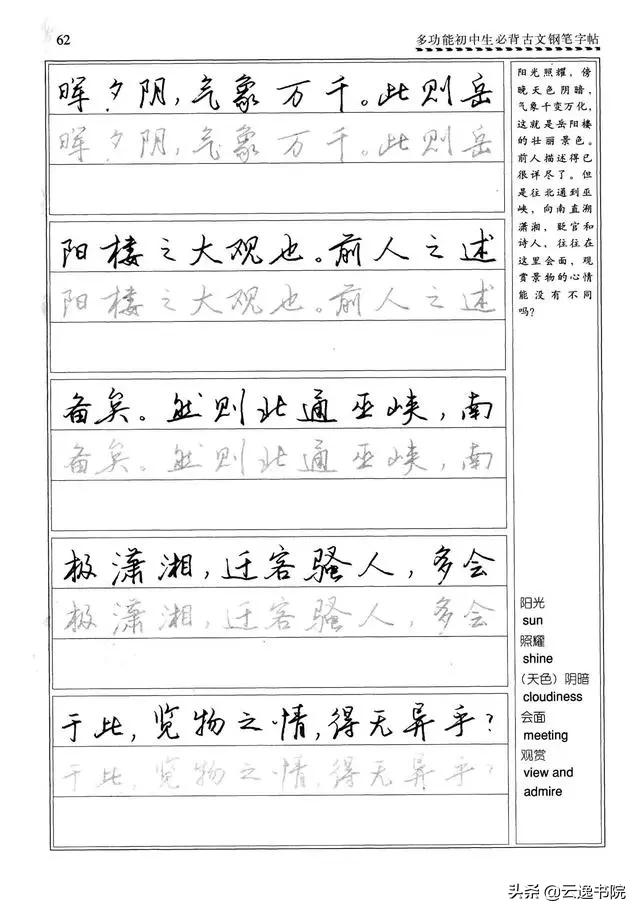 62
多功能初中生必背古文钢笔字帖
晖夕阴，气象万千。此则岳
晖夕阴，气象万千。此则岳
阳楼之大观也。前人之述
阳楼之大观也。前人之述
备矣。然则北通巫峡，南
备矣。然则北通巫峡，南
极潇湘，迁客骚人，多会
极潇湘，迁客骚人，多会
于此，览物之情，得无异乎？
于此，览物之情，得无异乎？
阳光照耀，傍
晚天色阴暗，
气象千变万化，
这就是岳阳楼
的壮丽景色。
前人描述得已
很详尽了。但
是往北通到巫
峡，向南直溯
潇湘，贬官和
诗人，往往在
这里会面，观
赏景物的心情
能没有不同
吗？
阳光
sun
照耀
shine
（天色）阴暗
cloudiness
会面
meeting
观赏
view and
admire
头条@云逸书院